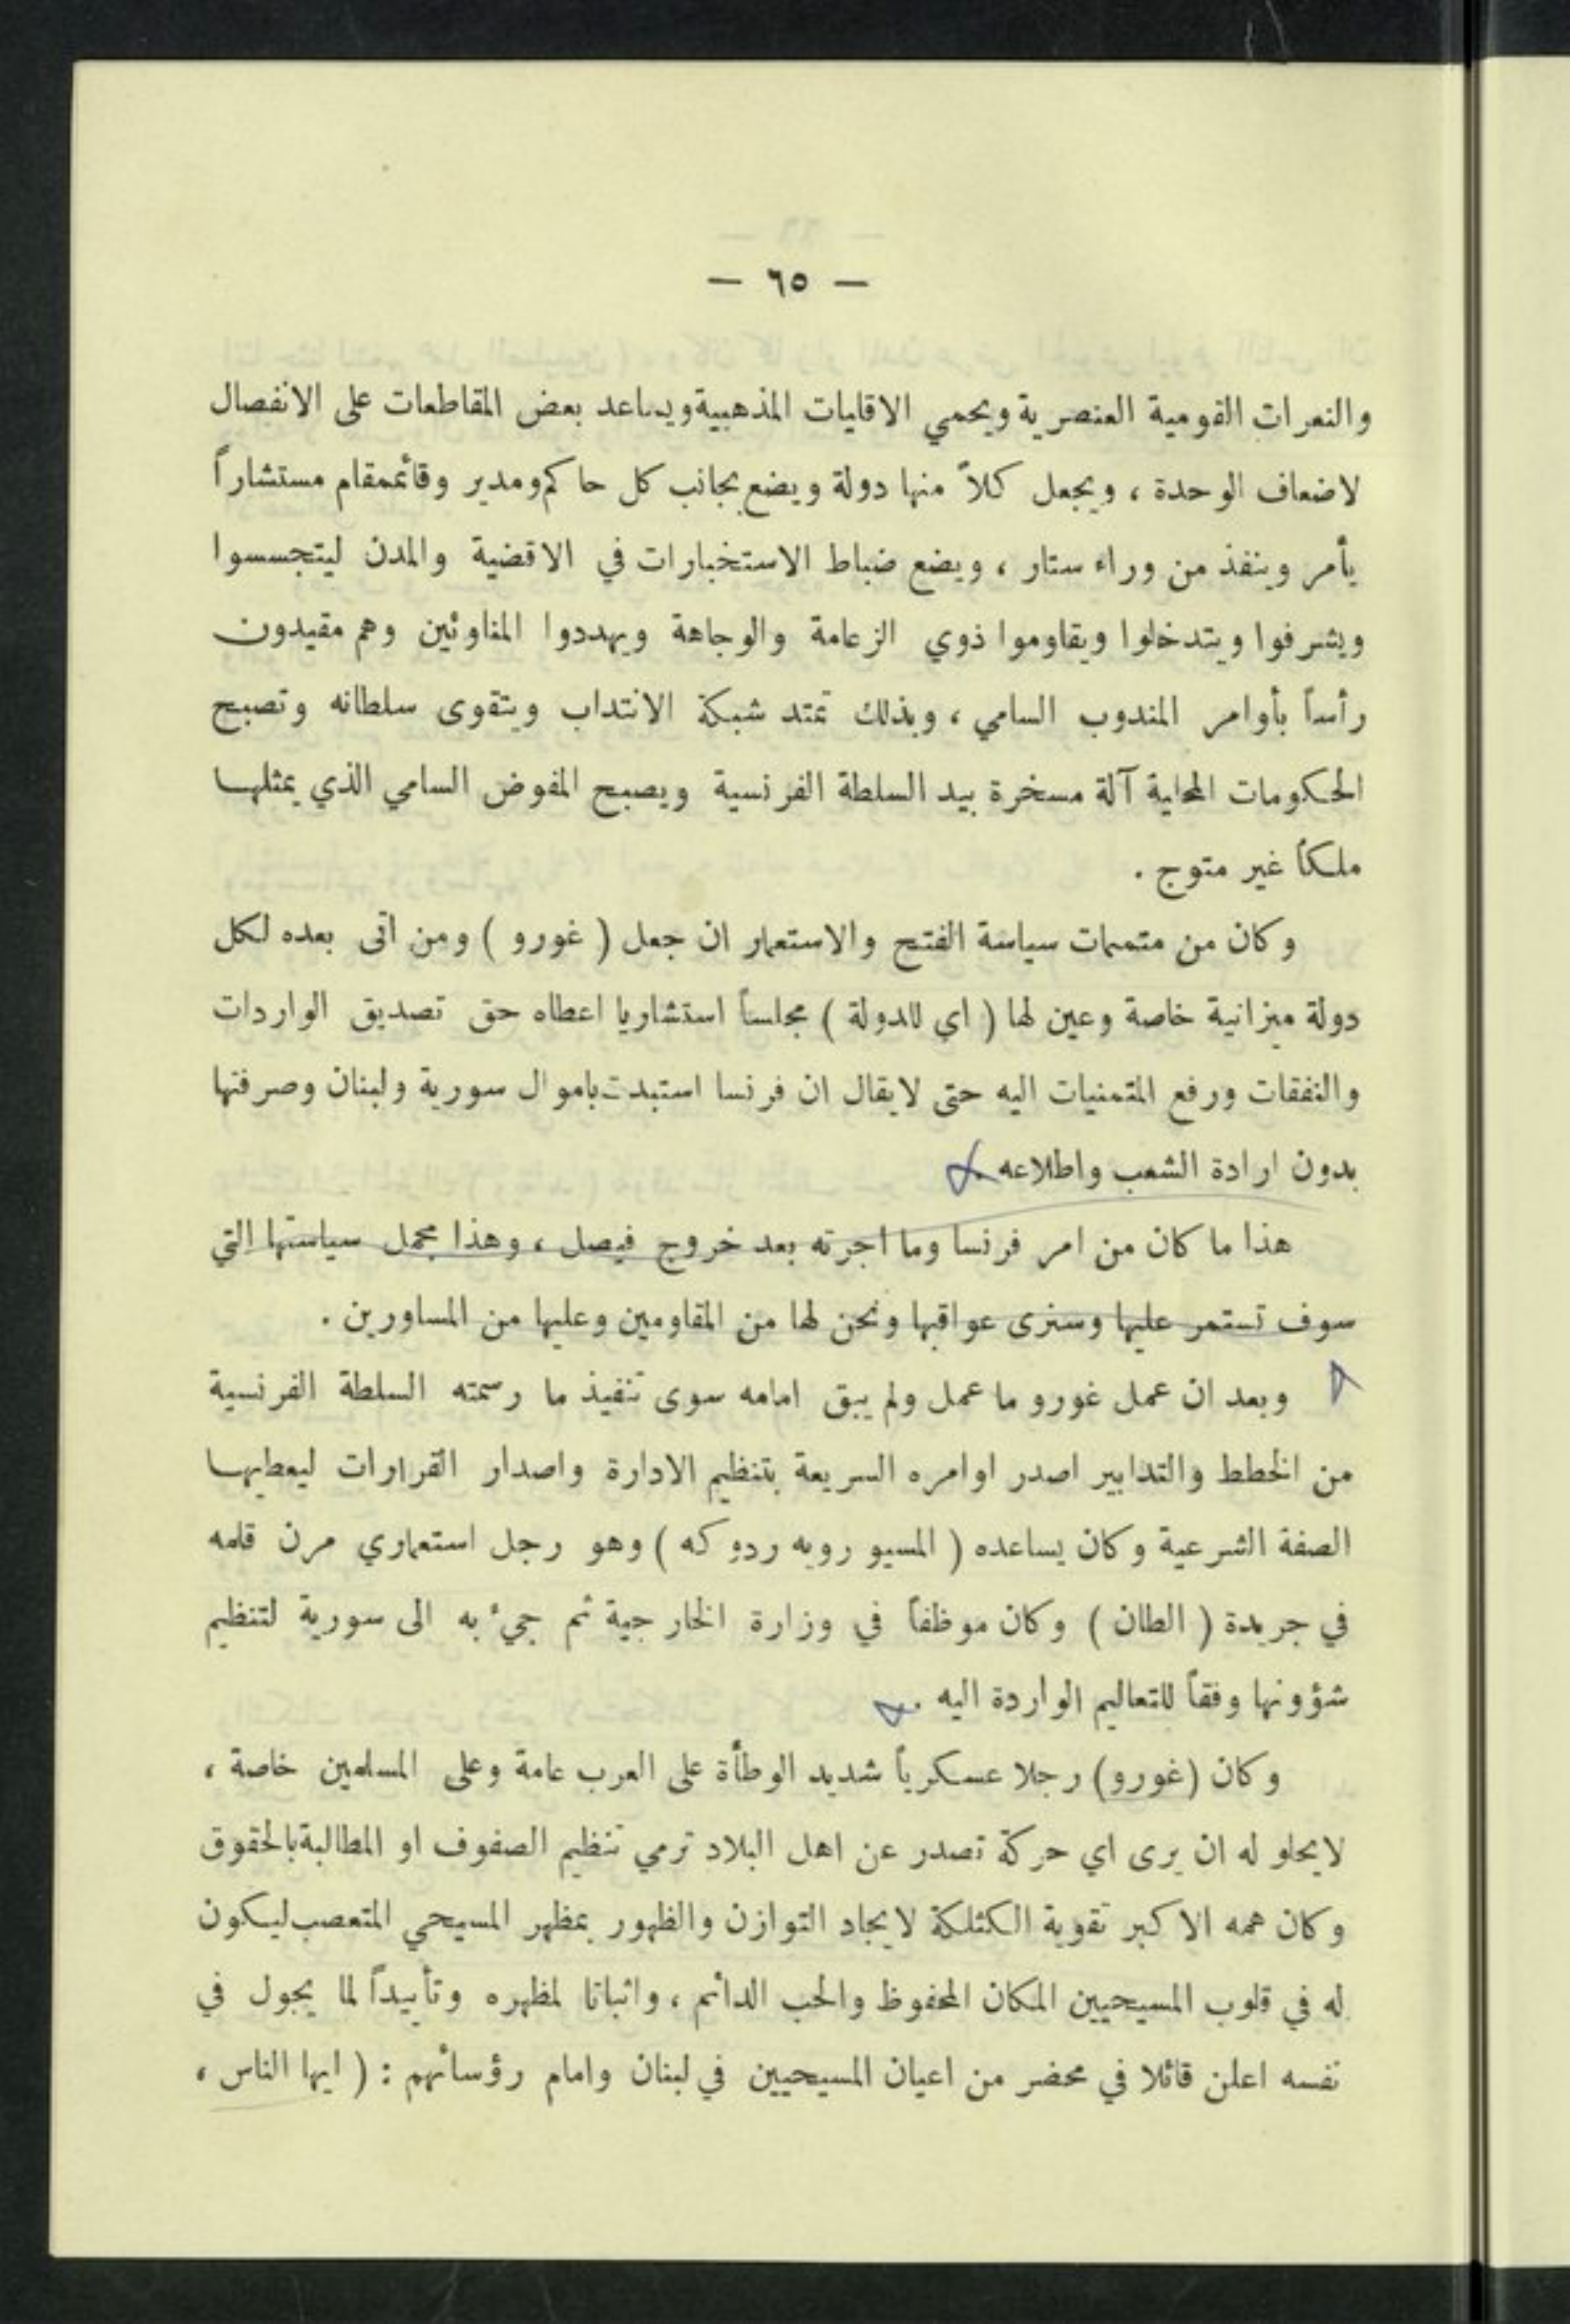 — ٦٥ —
والنعرات القومية العنصرية ويحمي الاقليات المذهبية ويساعد بعض المقاطعات على الانفصال
لاضعاف الوحدة ، ويجعل كلاً منها دولة ويضع بجانب كل حاكم ومدير وقائممقام مستشاراً
يأمر وينفذ من وراء ستار ، ويضع ضباط الاستخبارات في الاقضية والمدن ليتجسسوا
ويشرفوا ويتدخلوا ويقاوموا ذوي الزعامة والوجاهة ويهددوا المناوئين وهم مقيدون
رأساً بأوامر المندوب السامي ، وبذلك تمتد شبكة الانتداب ويتقوى سلطانه وتصبح
الحكومات المحلية آلة مسخرة بيد السلطة الفرنسية ويصبح المفوض السامي الذي يمثلها
ملكاً غير متوج .
وكان من متممات سياسة الفتح والاستعمار ان جعل ( غورو ) ومن اتى بعده لكل
دولة ميزانية خاصة وعين لها ( اي للدولة ) مجلساً استشاريا اعطاه حق تصديق الواردات
والنفقات ورفع المتمنيات اليه حتى لايقال ان فرنسا استبدت باموال سورية ولبنان وصرفتها
بدون ارادة الشعب واطلاعه .
هذا ما كان من امر فرنسا وما اجرته بعد خروج فيصل ، وهذا مجمل سياستها التي
سوف تستمر عليها وسنرى عواقبها ونحن لها من المقاومين وعليها من المساورين .
وبعد ان عمل غورو ما عمل ولم يبق امامه سوى تنفيذ ما رسمته السلطة الفرنسية
من الخطط والتدابير اصدر اوامره السريعة بتنظيم الادارة واصدار القرارات ليعطيها
الصفة الشرعية وكان يساعده ( المسيو روبه ردوكه ) وهو رجل استعماري مرن قلمه
في جريدة ( الطان ) وكان موظفاً في وزارة الخارجية ثم جيء به الى سورية لتنظيم
شؤونها وفقاً للتعاليم الواردة اليه .
وكان (غورو) رجلا عسكرياً شديد الوطأة على العرب عامة وعلى المسلمين خاصة ،
لايحلو له ان يرى اي حركة تصدر عن اهل البلاد ترمي تنظيم الصفوف او المطالبة بالحقوق
وكان همه الاكبر تقوية الكثلكة لايجاد التوازن والظهور بمظهر المسيحي المتعصب ليكون
له في قلوب المسيحيين المكان المحفوظ والحب الدائم ، واثباتا لمظهره وتأييداً لما يجول في
نفسه اعلن قائلا في محضر من اعيان المسيحيين في لبنان وامام رؤسائهم : ( ايها الناس ،